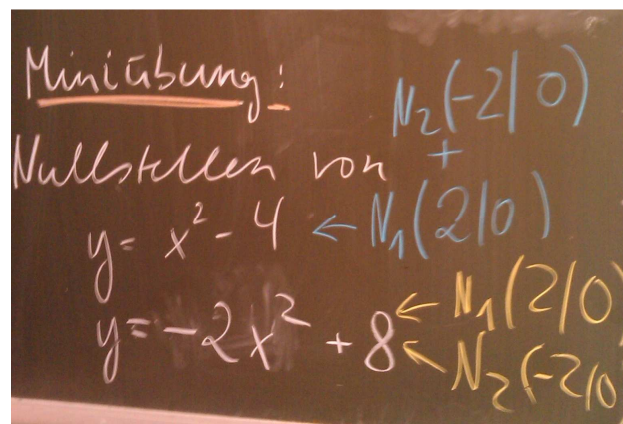 Miniübung:
N₂(-2|0)
+
Nullstellen von
y = x² - 4 ← N₁(2|0)
y = -2x² + 8 ← N₁(2|0)
← N₂(-2|0